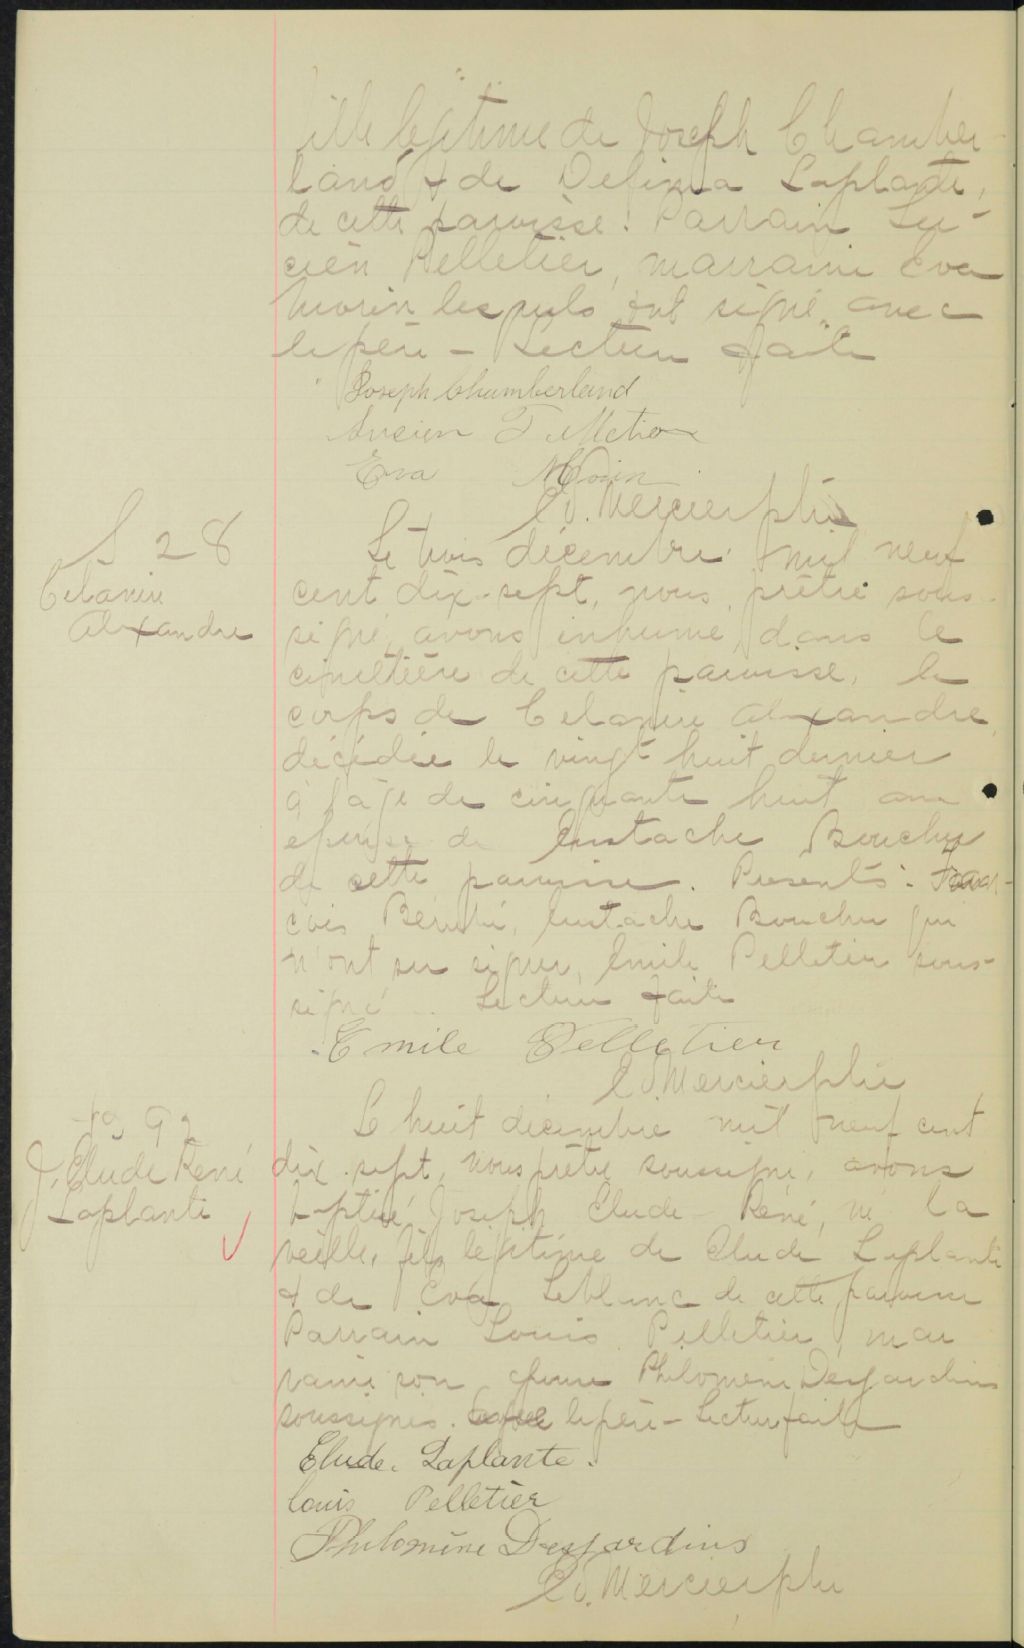 fille légitime de Joseph Chamber-
land & de Delima Laplante,
de cette paroisse. Parrain Lu-
cien Pelletier, marraine Eva
Morin lesquels ont signé avec
le père - Lecture faite
Joseph Chamberland
Lucien Pelletier
Eva Morin
Ed. Mercier ptre
S 28
Célanire
Alexandre
Le trois décembre mil neuf
cent dix-sept, nous, prêtre sous-
signé, avons inhumé dans le
cimetière de cette paroisse, le
corps de Célanire Alexandre,
décédée le vingt-huit dernier
à l'âge de cinquante huit ans
épouse de Eustache Boucher
de cette paroisse. Présents: Fran-
çois Bérubé, Eustache Boucher qui
n'ont su signer, Emile Pelletier sous-
signé. Lecture faite
Emile Pelletier
Ed. Mercier ptre
92
J. Elude René
Laplante
Le huit décembre mil neuf cent
dix-sept, nous prêtre soussigné, avons
baptisé Joseph Elude René, né la
veille, fils légitime de Elude Laplante
& de Eva Leblanc de cette paroisse
Parrain Louis Pelletier, mar
raine son épouse Philomène Desjardins
soussignés. avec le père - Lecture faite
Elude. Laplante.
Louis Pelletier
Philomène Desjardins
Ed. Mercier ptre